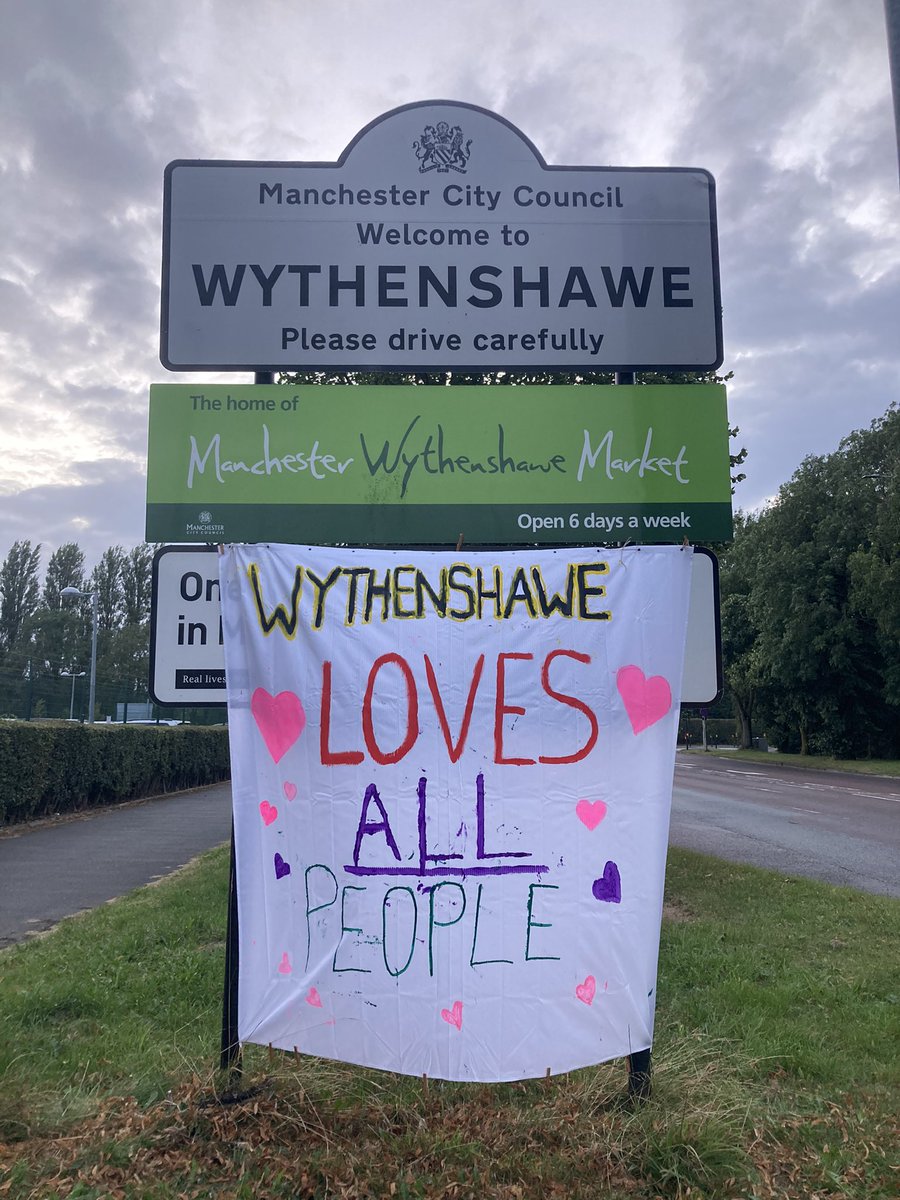 Manchester City Council
Welcome to
WYTHENSHAWE
Please drive carefully
The home of
Manchester Wythenshawe Market
MANCHESTER
CITY COUNCIL
Open 6 days a week
On
in
Real lives
WYTHENSHAWE
LOVES
ALL
PEOPLE